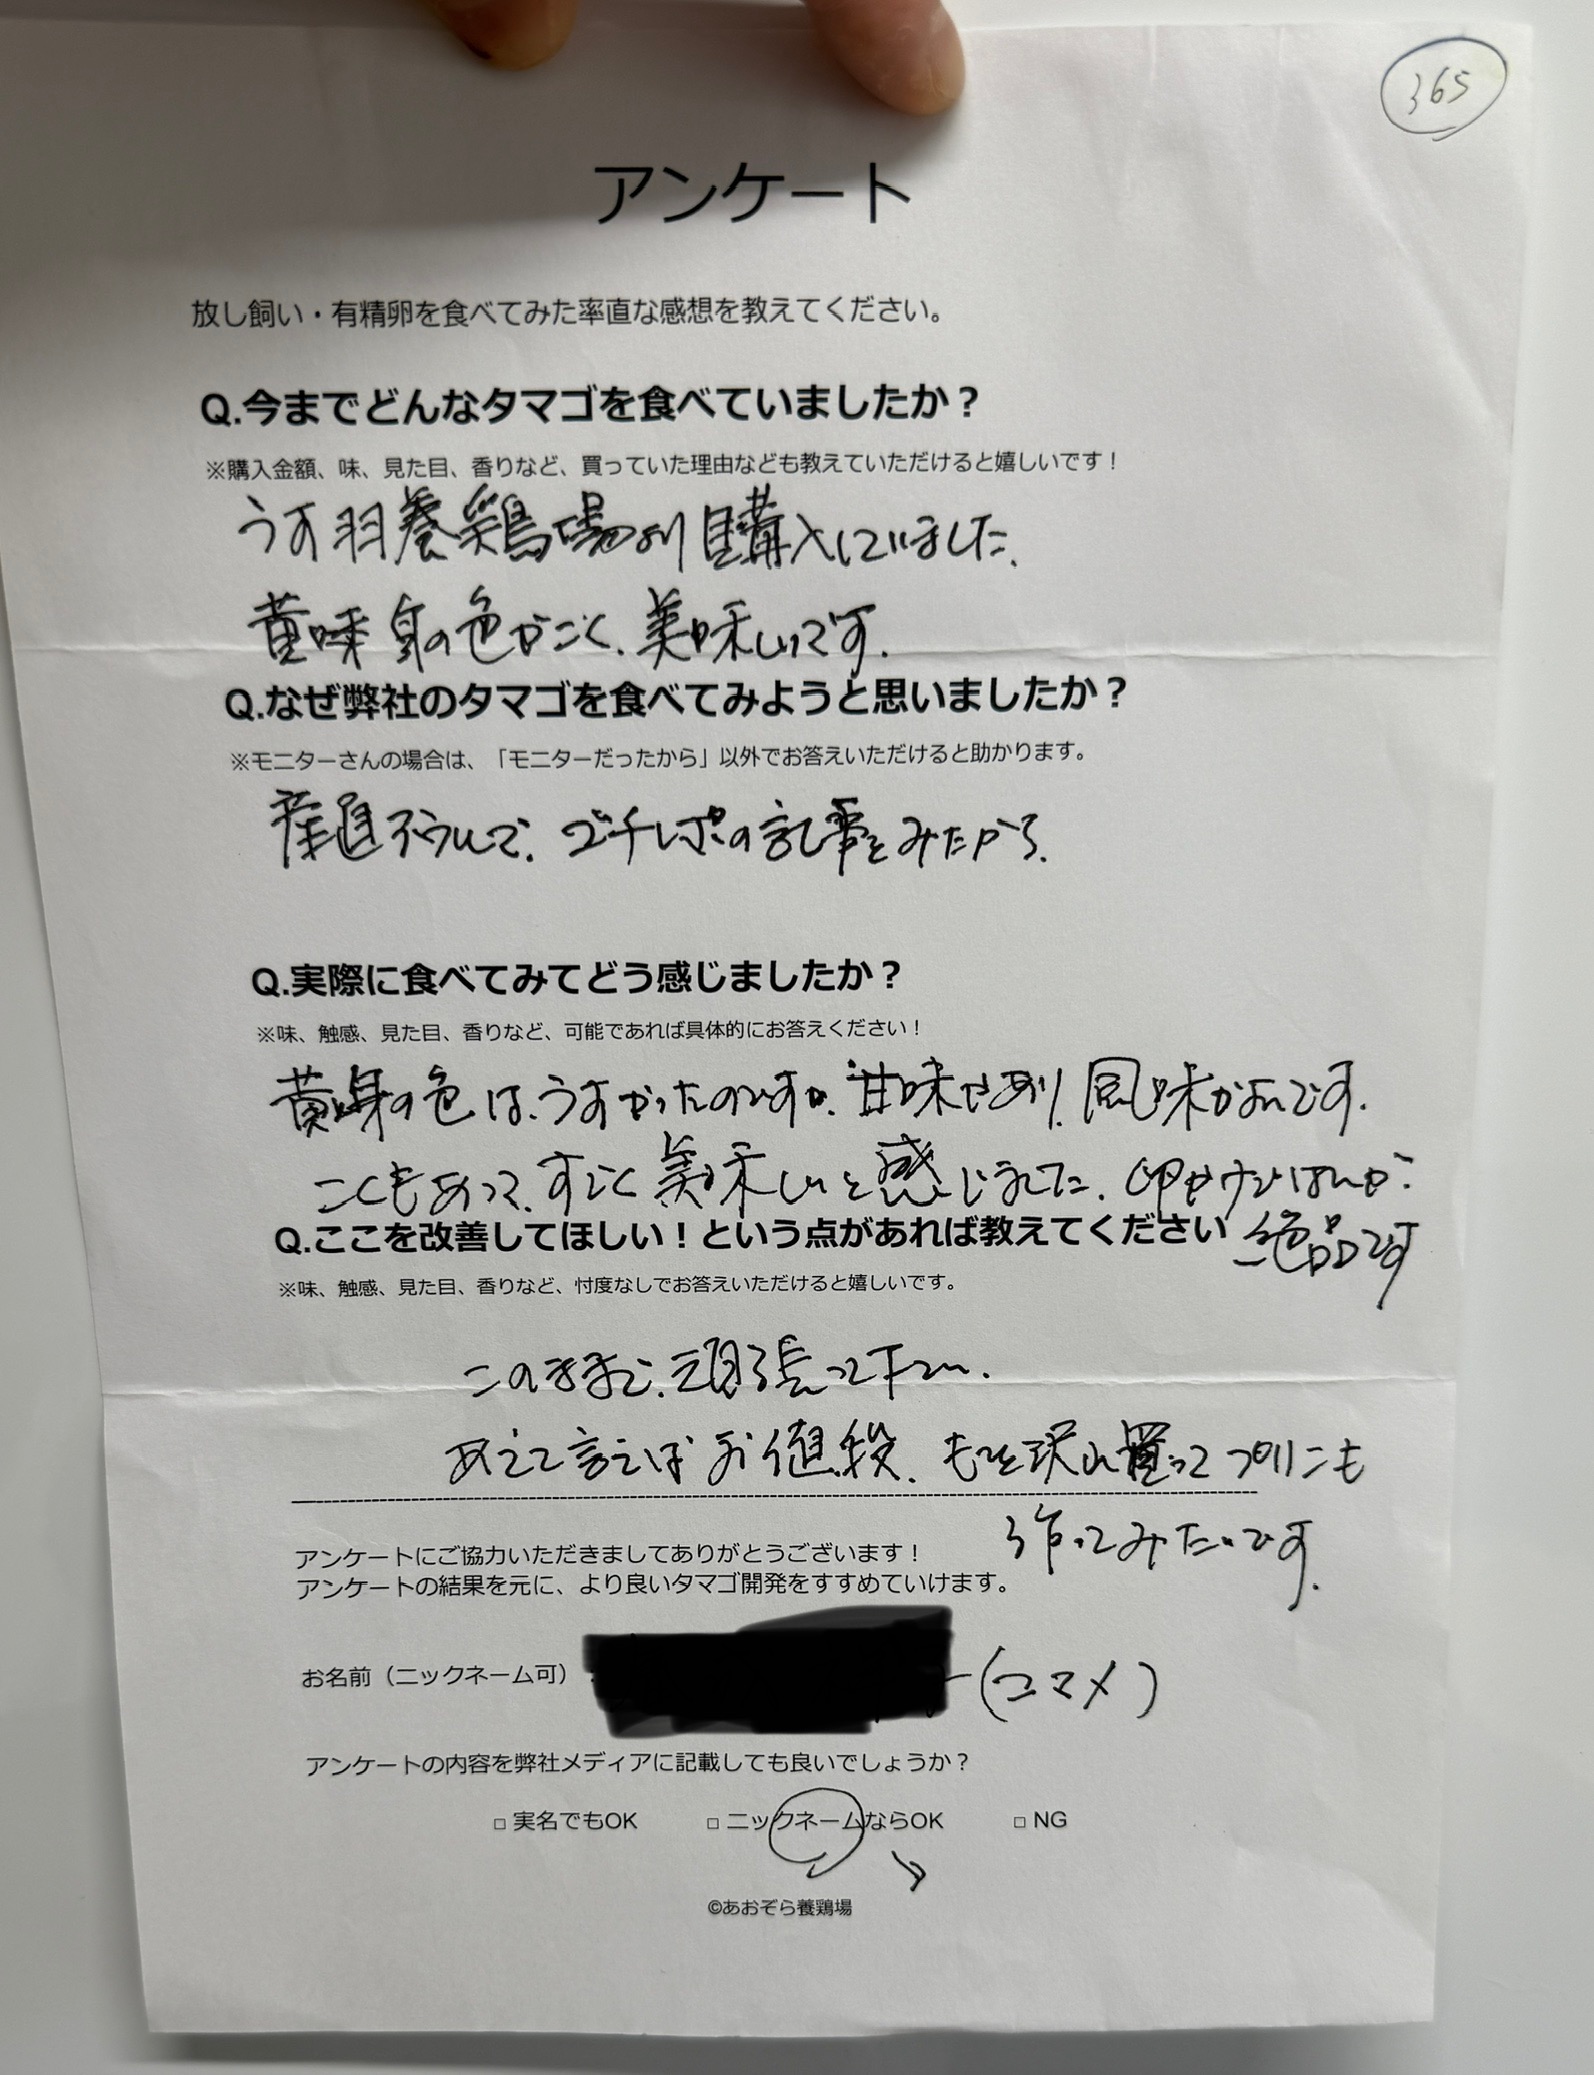 365
アンケート
放し飼い・有精卵を食べてみた率直な感想を教えてください。
Q.今までどんなタマゴを食べていましたか？
※購入金額、味、見た目、香りなど、買っていた理由なども教えていただけると嬉しいです！
うす羽養鶏場より購入していました。
黄味身の色がこく、美味しいです。
Q.なぜ弊社のタマゴを食べてみようと思いましたか？
※モニターさんの場合は、「モニターだったから」以外でお答えいただけると助かります。
産直アウルで、ゴチレポの記事をみたから。
Q.実際に食べてみてどう感じましたか？
※味、触感、見た目、香りなど、可能であれば具体的にお答えください！
黄身の色は、うすかったのですが、甘味があり、風味がよいです。
こくもあって、すごく美味しいと感じました。卵かけごはんが
絶品です
Q.ここを改善してほしい！という点があれば教えてください
※味、触感、見た目、香りなど、忖度なしでお答えいただけると嬉しいです。
このままで、頑張って下さい。
あえて言えばお値段、もっと沢山買ってプリンも
作ってみたいです。
アンケートにご協力いただきましてありがとうございます！
アンケートの結果を元に、より良いタマゴ開発をすすめていけます。
お名前（ニックネーム可）
(コマメ)
アンケートの内容を弊社メディアに記載しても良いでしょうか？
□ 実名でもOK □ ニックネームならOK □ NG
©あおぞら養鶏場